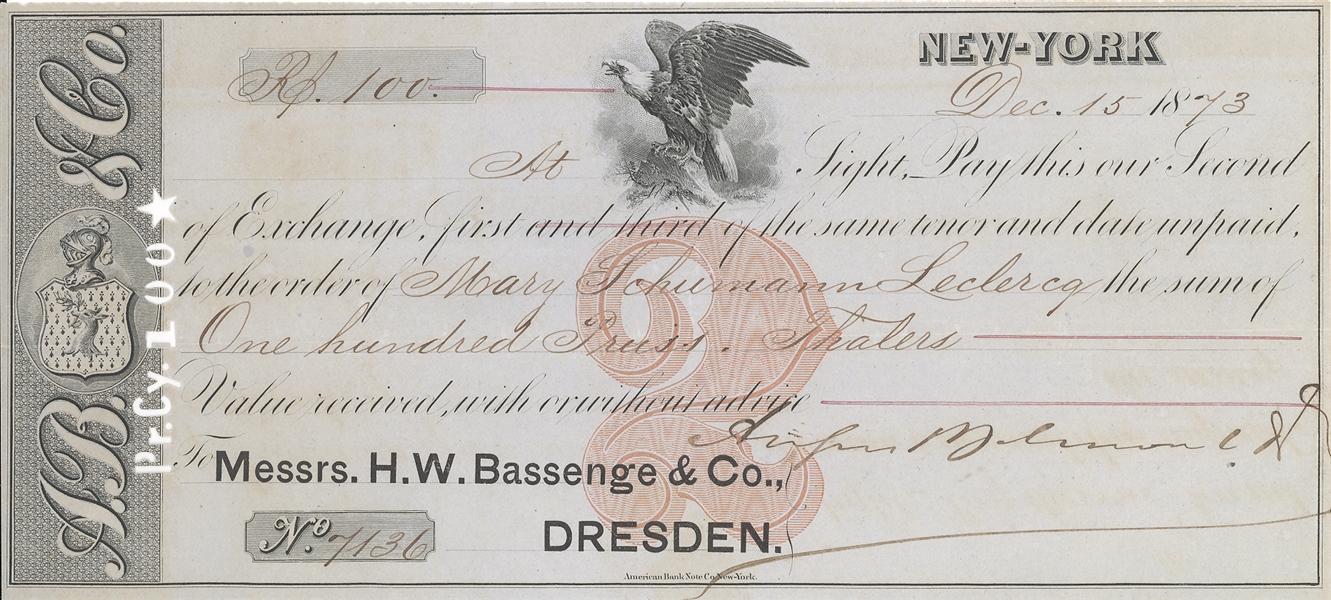 A.B. & Co.
pr.Cy. 100 ★
NEW-YORK
Rf. 100.
Dec. 15 1873
At Sight, Pay this our Second
of Exchange, first and third of the same tenor and date unpaid,
to the order of Mary Schumann Leclercq the sum of
One hundred Pruss. Thalers
Value received, with or without advice
August Belmont & Co
To Messrs. H.W. Bassenge & Co.,
DRESDEN.
No. 7136
2
American Bank Note Co. New-York.